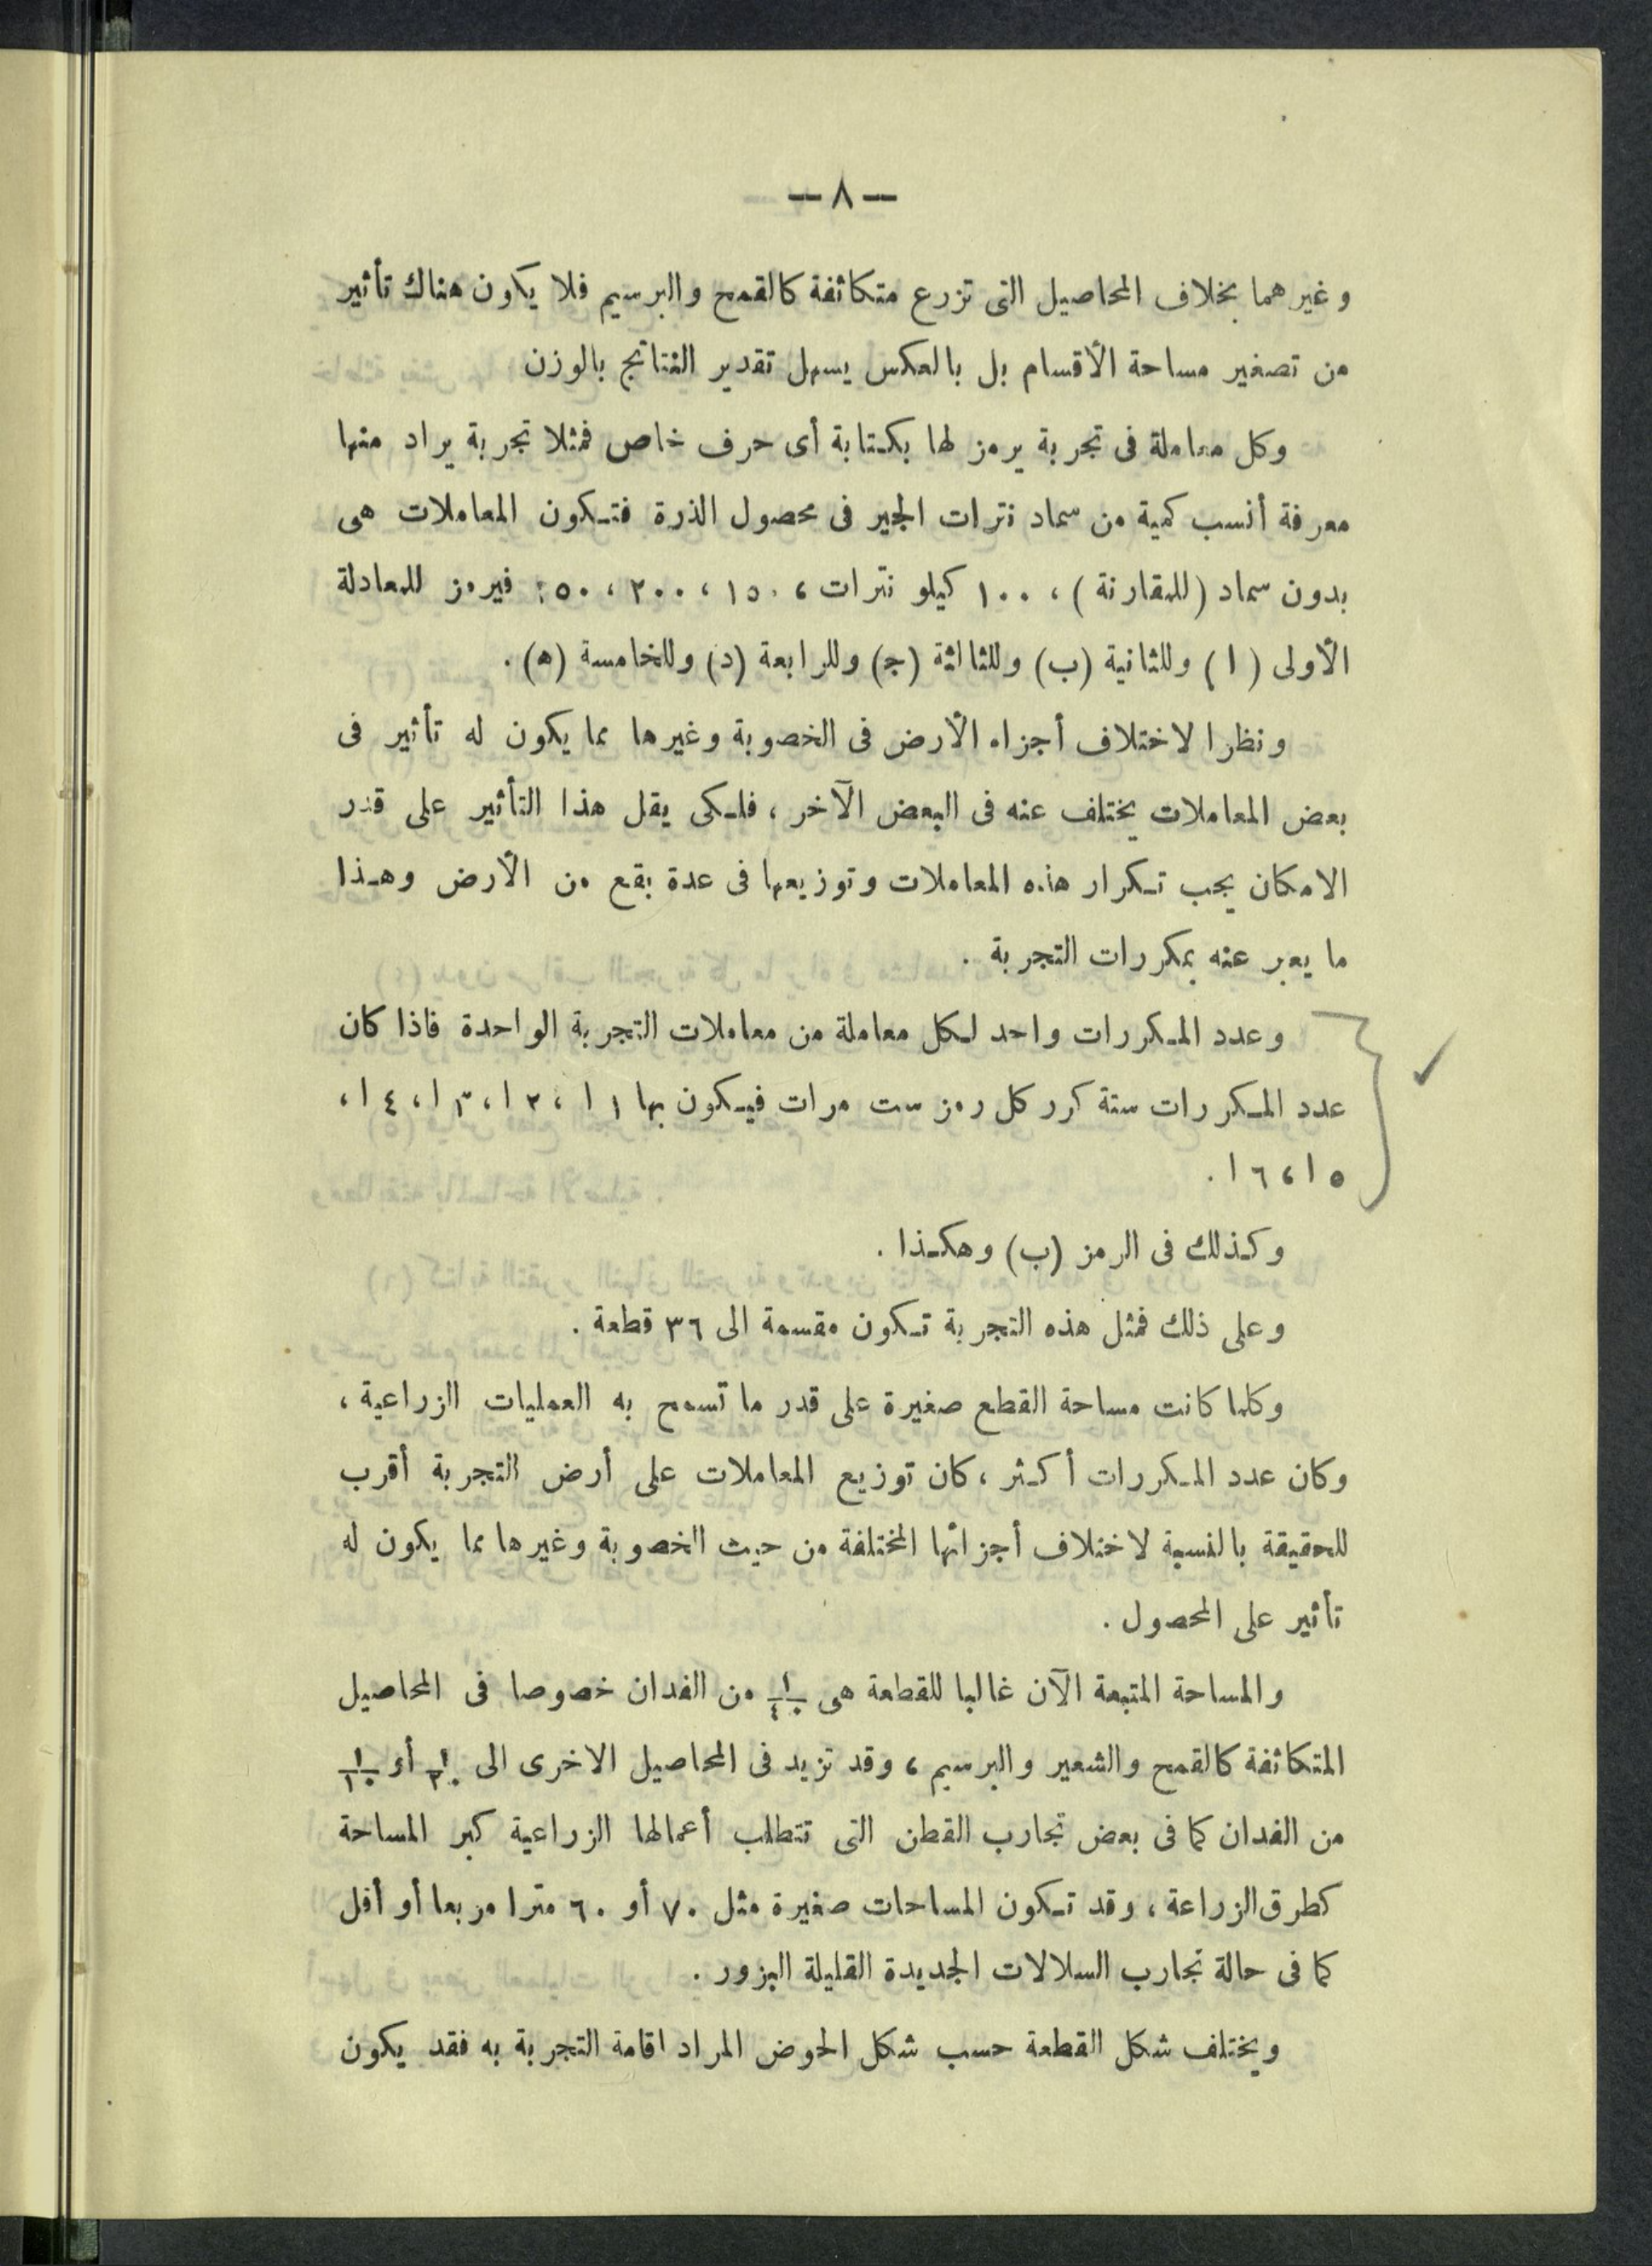 — ٨ —
وغيرهما بخلاف المحاصيل التى تزرع متكاثفة كالقمح والبرسيم فلا يكون هناك تأثير
من تصغير مساحة الأقسام بل بالعكس يسهل تقدير النتائج بالوزن
وكل معاملة فى تجربة يرمز لها بكتابة أى حرف خاص فمثلا تجربة يراد منها
معرفة أنسب كمية من سماد نترات الجير فى محصول الذرة فتكون المعاملات هى
بدون سماد (للمقارنة) ، ١٠٠ كيلو نترات ، ١٥٠ ، ٢٠٠ ، ٢٥٠ فيرمز للمعادلة
الأولى (ا) وللثانية (ب) وللثالثة (ج) وللرابعة (د) وللخامسة (ه) .
ونظرا لاختلاف أجزاء الأرض فى الخصوبة وغيرها مما يكون له تأثير فى
بعض المعاملات يختلف عنه فى البعض الآخر ، فلكى يقل هذا التأثير على قدر
الامكان يجب تكرار هذه المعاملات وتوزيعها فى عدة بقع من الأرض وهذا
ما يعبر عنه بمكررات التجربة .
وعدد المكررات واحد لكل معاملة من معاملات التجربة الواحدة فاذا كان
عدد المكررات ستة كرر كل رمز ست مرات فيكون بها ١ ا ، ٢ ا ، ٣ ا ، ٤ ا ،
٥ ا ، ٦ ا .
وكذلك فى الرمز (ب) وهكذا .
وعلى ذلك فمثل هذه التجربة تكون مقسمة الى ٣٦ قطعة .
وكلما كانت مساحة القطع صغيرة على قدر ما تسمح به العمليات الزراعية ،
وكان عدد المكررات أكثر ، كان توزيع المعاملات على أرض التجربة أقرب
للحقيقة بالنسبة لاختلاف أجزائها المختلفة من حيث الخصوبة وغيرها مما يكون له
تأثير على المحصول .
والمساحة المتبعة الآن غالبا للقطعة هى ١/٤٠ من الفدان خصوصا فى المحاصيل
المتكاثفة كالقمح والشعير والبرسيم ، وقد تزيد فى المحاصيل الاخرى الى ١/٢٠ أو ١/١٠
من الفدان كما فى بعض تجارب القطن التى تتطلب أعمالها الزراعية كبر المساحة
كطرق الزراعة ، وقد تكون المساحات صغيرة مثل ٧٠ أو ٦٠ مترا مربعا أو أقل
كما فى حالة تجارب السلالات الجديدة القليلة البزور .
ويختلف شكل القطعة حسب شكل الحوض المراد اقامة التجربة به فقد يكون